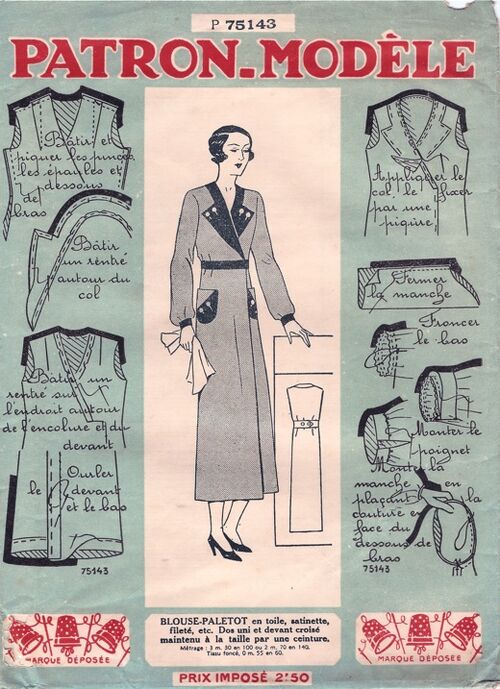 P 75143
PATRON-MODÈLE
Bâtir et
piquer les pinces,
les épaules et
dessous
de
bras
Bâtir
un rentré
autour du
col
Bâtir un
rentré sur
l'endroit autour
de l'encolure et du
devant
Ourler
le devant
et le bas
75143
Appliquer le
col le fixer
par une
piqûre
Fermer
la manche
Froncer
le bas
Monter le
poignet
Monter la
manche en
plaçant la
couture en
face du
dessous de
bras
75143
BLOUSE-PALETOT en toile, satinette,
fileté, etc. Dos uni et devant croisé
maintenu à la taille par une ceinture.
Métrage : 3 m. 30 en 100 ou 2 m. 70 en 140.
Tissu foncé, 0 m. 55 en 60.
MARQUE DÉPOSÉE
MARQUE DÉPOSÉE
PRIX IMPOSÉ 2f50